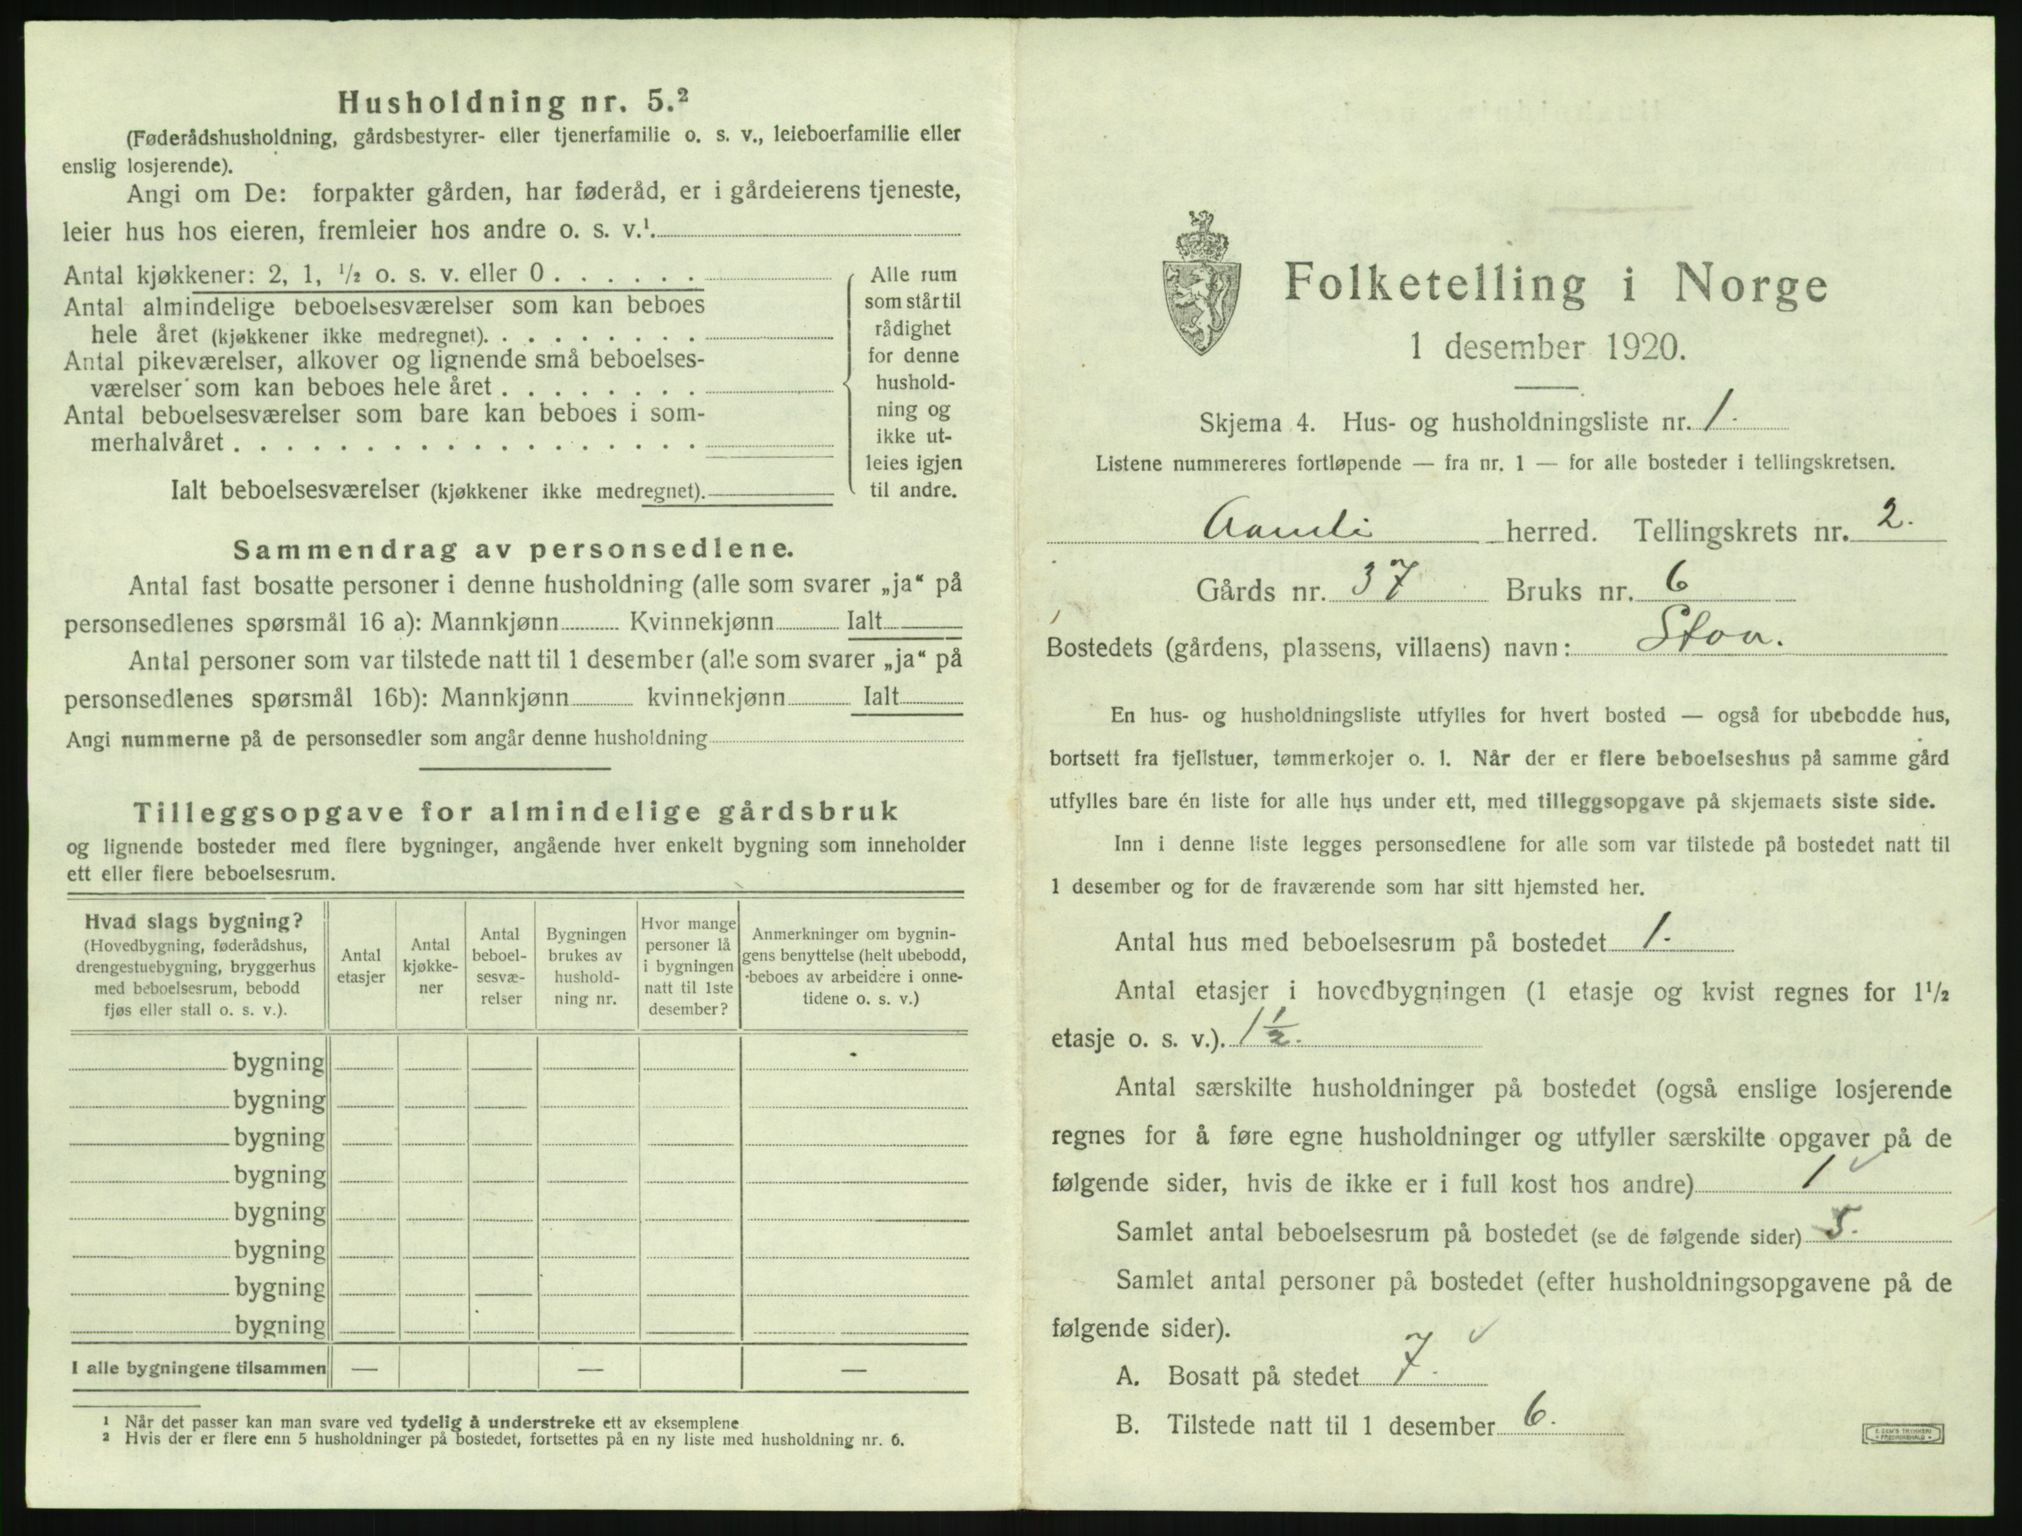 Husholdning nr. 5.²
(Føderådshusholdning, gårdsbestyrer- eller tjenerfamilie o. s. v., leieboerfamilie eller
enslig losjerende).
Angi om De: forpakter gården, har føderåd, er i gårdeierens tjeneste,
leier hus hos eieren, fremleier hos andre o. s. v.¹.
Antal kjøkkener: 2, 1, ½ o. s. v. eller 0 . . . . . .
Antal almindelige beboelsesværelser som kan beboes
hele året (kjøkkener ikke medregnet). . . . . . . . .
Antal pikeværelser, alkover og lignende små beboelses-
værelser som kan beboes hele året . . . . . . . .
Antal beboelsesværelser som bare kan beboes i som-
merhalvåret . . . . . . . . . . . . . . . . . .
Ialt beboelsesværelser (kjøkkener ikke medregnet).
Alle rum
som står til
rådighet
for denne
hushold-
ning og
ikke ut-
leies igjen
til andre.
Sammendrag av personsedlene.
Antal fast bosatte personer i denne husholdning (alle som svarer „ja“ på
personsedlenes spørsmål 16 a): Mannkjønn Kvinnekjønn Ialt
Antal personer som var tilstede natt til 1 desember (alle som svarer „ja“ på
personsedlenes spørsmål 16b): Mannkjønn kvinnekjønn Ialt
Angi nummerne på de personsedler som angår denne husholdning
Tilleggsopgave for almindelige gårdsbruk
og lignende bosteder med flere bygninger, angående hver enkelt bygning som inneholder
ett eller flere beboelsesrum.
Hvad slags bygning?
(Hovedbygning, føderådshus,
drengestuebygning, bryggerhus
med beboelsesrum, bebodd
fjøs eller stall o. s. v.).
Antal
etasjer
Antal
kjøkke-
ner
Antal
beboel-
sesvæ-
relser
Bygningen
brukes av
hushold-
ning nr.
Hvor mange
personer lå
i bygningen
natt til 1ste
desember?
Anmerkninger om bygnin-
gens benyttelse (helt ubebodd,
beboes av arbeidere i onne-
tidene o. s. v.)
bygning
bygning
bygning
bygning
bygning
bygning
bygning
bygning
I alle bygningene tilsammen — — —
¹ Når det passer kan man svare ved tydelig å understreke ett av eksemplene
² Hvis der er flere enn 5 husholdninger på bostedet, fortsettes på en ny liste med husholdning nr. 6.
Folketelling i Norge
1 desember 1920.
Skjema 4. Hus- og husholdningsliste nr. 1.
Listene nummereres fortløpende — fra nr. 1 — for alle bosteder i tellingskretsen.
Aamli herred. Tellingskrets nr. 2.
Gårds nr. 37 Bruks nr. 6
Bostedets (gårdens, plassens, villaens) navn: Stoa.
En hus- og husholdningsliste utfylles for hvert bosted — også for ubebodde hus,
bortsett fra fjellstuer, tømmerkojer o. l. Når der er flere beboelseshus på samme gård
utfylles bare én liste for alle hus under ett, med tilleggsopgave på skjemaets siste side.
Inn i denne liste legges personsedlene for alle som var tilstede på bostedet natt til
1 desember og for de fraværende som har sitt hjemsted her.
Antal hus med beboelsesrum på bostedet 1.
Antal etasjer i hovedbygningen (1 etasje og kvist regnes for 1½
etasje o. s. v.). 1½.
Antal særskilte husholdninger på bostedet (også enslige losjerende
regnes for å føre egne husholdninger og utfyller særskilte opgaver på de
følgende sider, hvis de ikke er i full kost hos andre) 1 ✓
Samlet antal beboelsesrum på bostedet (se de følgende sider) 5.
Samlet antal personer på bostedet (efter husholdningsopgavene på de
følgende sider).
A. Bosatt på stedet 7. ✓
B. Tilstede natt til 1 desember 6.